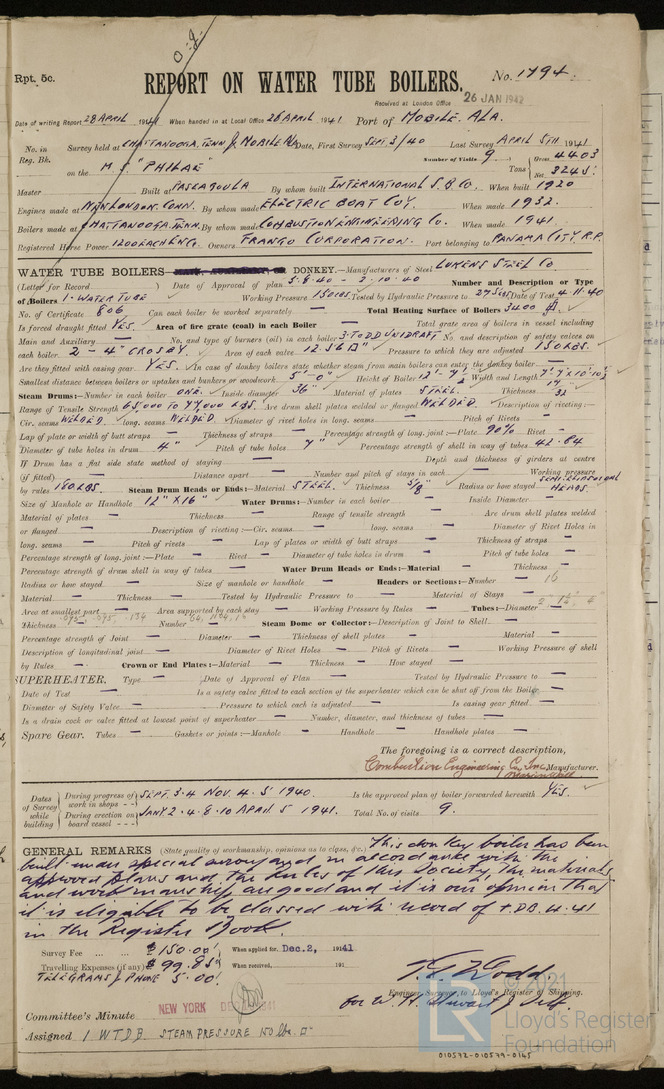 Rpt. 5c.
REPORT ON WATER TUBE BOILERS.
No. 1794.
Received at London Office 26 JAN 1942
Date of writing Report 28 APRIL 1941 When handed in at Local Office 26 APRIL 1941 Port of MOBILE ALA.
No. in Survey held at CHATTANOOGA, TENN & MOBILE ALA Date, First Survey SEPT. 3/40 Last Survey APRIL 5TH 1941
Reg. Bk. Number of Visits 9
on the M.S. "PHILAE" Tons Gross 4403 Net 3245
Master Built at PASCAGOULA By whom built INTERNATIONAL S.B. CO. When built 1920
Engines made at NEW LONDON, CONN. By whom made ELECTRIC BOAT COY. When made 1932.
Boilers made at CHATTANOOGA, TENN. By whom made COMBUSTION ENGINEERING CO. When made 1941.
Registered Horse Power 1200 EACH ENG. Owners FRANGO CORPORATION. Port belonging to PANAMA CITY R.P.
WATER TUBE BOILERS DONKEY.—Manufacturers of Steel LUKENS STEEL CO.
(Letter for Record ) Date of Approval of plan 5-8-40 - 2-10-40 Number and Description or Type
of Boilers 1-WATER TUBE Working Pressure 150 LBS. Tested by Hydraulic Pressure to 275 LBS. Date of Test 4-11-40
No. of Certificate 806 Can each boiler be worked separately — Total Heating Surface of Boilers 3400
Is forced draught fitted YES. Area of fire grate (coal) in each Boiler — Total grate area of boilers in vessel including
Main and Auxiliary — No. and type of burners (oil) in each boiler 3-TODD UNIDRAFT No. and description of safety valves on
each boiler 2 - 4" CROSBY. Area of each valve 12.56 □" Pressure to which they are adjusted 150 LBS.
Are they fitted with easing gear YES. In case of donkey boilers state whether steam from main boilers can enter the donkey boiler —
Smallest distance between boilers or uptakes and bunkers or woodwork 5'-0" Height of Boiler Width and Length
Steam Drums:—Number in each boiler ONE. Inside diameter 36" Material of plates STEEL. Thickness
Range of Tensile Strength 65,000 TO 77,000 LBS. Are drum shell plates welded or flanged WELDED Description of riveting:—
Cir. seams WELDED long. seams WELDED Diameter of rivet holes in long. seams — Pitch of Rivets —
Lap of plate or width of butt straps — Thickness of straps — Percentage strength of long. joint:—Plate 90% Rivet —
Diameter of tube holes in drum 4" Pitch of tube holes 7" Percentage strength of shell in way of tubes 42.84
If Drum has a flat side state method of staying — Depth and thickness of girders at centre
(if fitted) — Distance apart — Number and pitch of stays in each — Working pressure
by rules 180 LBS. Steam Drum Heads or Ends:—Material STEEL. Thickness 5/8" Radius or how stayed SEMI-ELLIPSOIDAL HEADS.
Size of Manhole or Handhole 12" X 16" Water Drums:—Number in each boiler — Inside Diameter —
Material of plates — Thickness — Range of tensile strength — Are drum shell plates welded
or flanged — Description of riveting:—Cir. seams — long. seams — Diameter of Rivet Holes in
long. seams — Pitch of rivets — Lap of plates or width of butt straps — Thickness of straps —
Percentage strength of long. joint:—Plate — Rivet — Diameter of tube holes in drum — Pitch of tube holes —
Percentage strength of drum shell in way of tubes — Water Drum Heads or Ends:—Material — Thickness —
Radius or how stayed — Size of manhole or handhole — Headers or Sections:—Number 16
Material — Thickness — Tested by Hydraulic Pressure to — Material of Stays —
Area at smallest part — Area supported by each stay — Working Pressure by Rules — Tubes:—Diameter
Thickness .095, .095, .134 Number Steam Dome or Collector:—Description of Joint to Shell —
Percentage strength of Joint — Diameter — Thickness of shell plates — Material —
Description of longitudinal joint — Diameter of Rivet Holes — Pitch of Rivets — Working Pressure of shell
by Rules — Crown or End Plates:—Material — Thickness — How stayed —
SUPERHEATER. Type — Date of Approval of Plan — Tested by Hydraulic Pressure to —
Date of Test — Is a safety valve fitted to each section of the superheater which can be shut off from the Boiler —
Diameter of Safety Valve — Pressure to which each is adjusted — Is easing gear fitted —
Is a drain cock or valve fitted at lowest point of superheater — Number, diameter, and thickness of tubes —
Spare Gear. Tubes — Gaskets or joints:—Manhole — Handhole — Handhole plates —
The foregoing is a correct description,
Combustion Engineering Co. Inc. Manufacturer.
Dates of Survey while building
During progress of work in shops - - SEPT. 3-4 NOV. 4-5 1940. Is the approved plan of boiler forwarded herewith YES.
During erection on board vessel - - - JANY 2-4-8-10 APRIL 5 1941. Total No. of visits 9.
GENERAL REMARKS (State quality of workmanship, opinions as to class, &c.) This donkey boiler has been
built under special survey and in accordance with the
approved plans and the Rules of this Society, the materials
and workmanship are good and it is our opinion that
it is eligible to be classed with record of + DB. 4.41
in the Register Book.
Survey Fee ... ... $150.00 When applied for, Dec. 2, 1941
Travelling Expenses (if any) $99.85 When received, 191
TELEGRAMS & PHONE 5.00
Engineer Surveyor to Lloyd's Register of Shipping.
Committee's Minute NEW YORK DEC 1941
Assigned 1 WTDB STEAM PRESSURE 150 lbs. □"
© 2021
LR
Lloyd's Register
Foundation
010572-010579-0145